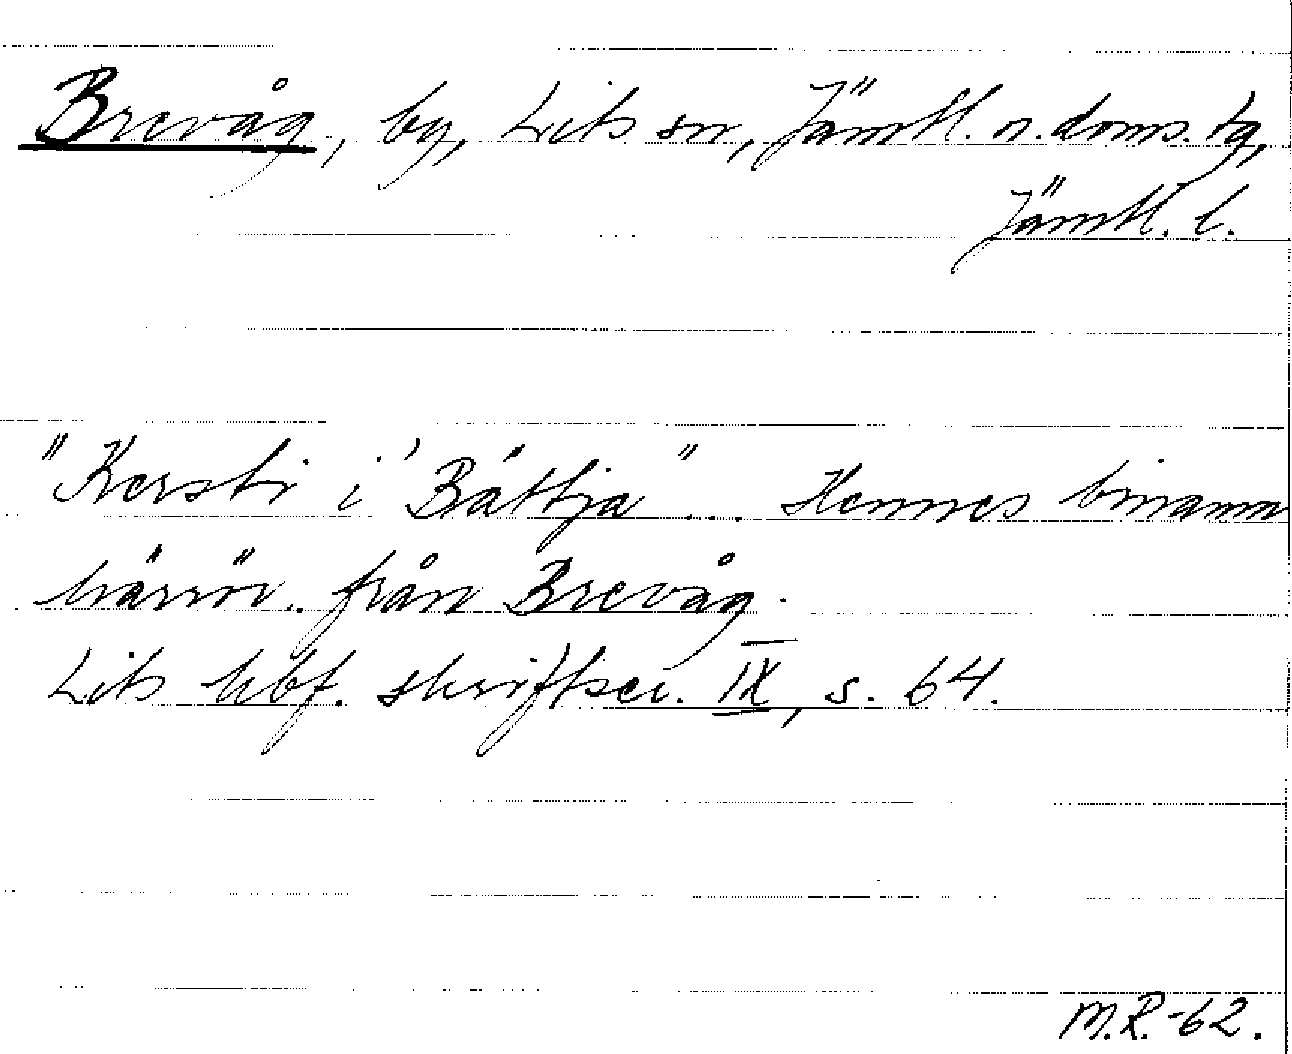 Brevåg, by, Lits sn, Jämtl. n. doms. tg,
Jämtl. l.
"Kersti i 'Båttja" ... Hennes binamn
härrör.. från Brevåg.
Lits hbf. skriftser. IX, s. 64.
M.R.-62.